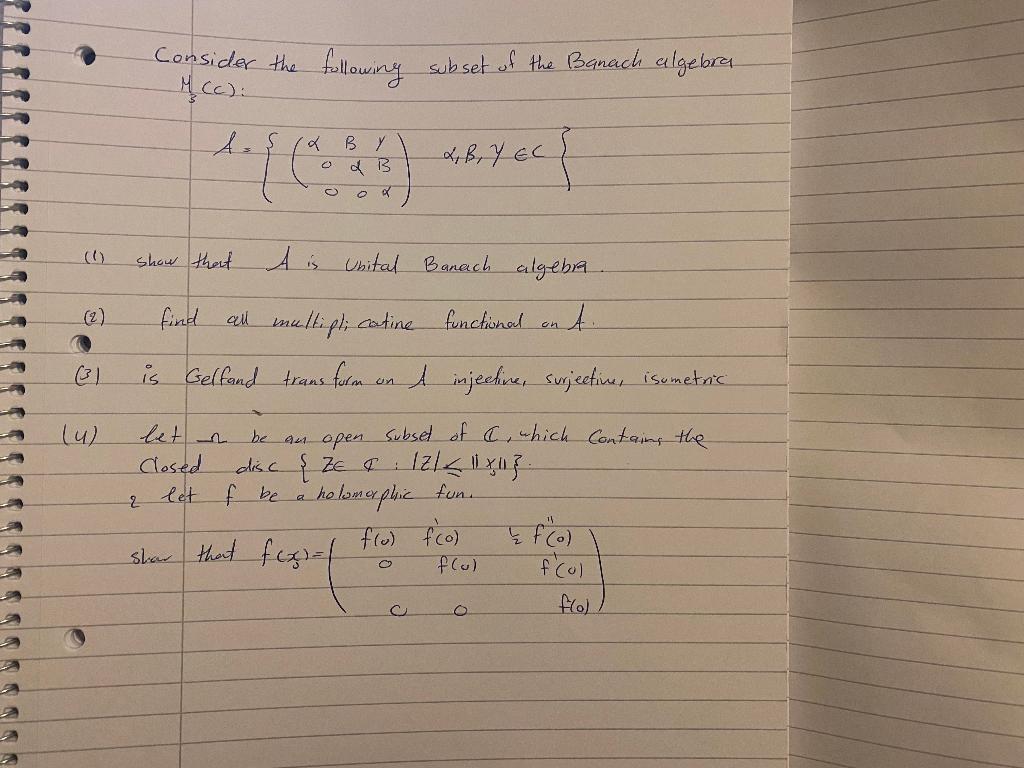 Consider the following subset of the Banach algebra
M₃(C):
A = { ( α B γ
0 α B
0 0 α ) α, B, γ ∈ C }
(1) show that A is unital Banach algebra.
(2) find all multiplicative functional on A.
(3) is Gelfand transform on A injective, surjective, isometric
(4) let Ω be an open subset of ℂ, which contains the
Closed disc { Z ∈ ℂ : |Z| ≤ ||x₃|| }.
& let f be a holomorphic fun.
show that f(x₃) = ( f(0) f'(0) ½ f''(0)
0 f(0) f'(0)
0 0 f(0) )